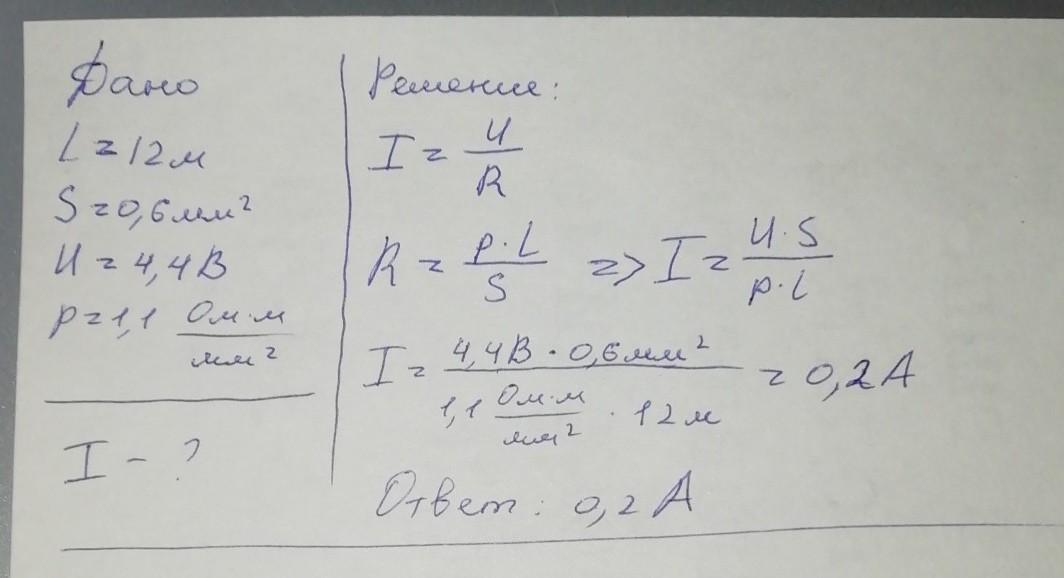 Дано
L = 12 м
S = 0,6 мм²
U = 4,4 В
ρ = 1,1 Ом·м / мм²
I - ?
Решение:
I = U / R
R = ρ·L / S => I = U·S / ρ·L
I = 4,4 В · 0,6 мм² / 1,1 Ом·м / мм² · 12 м = 0,2 А
Ответ: 0,2 А